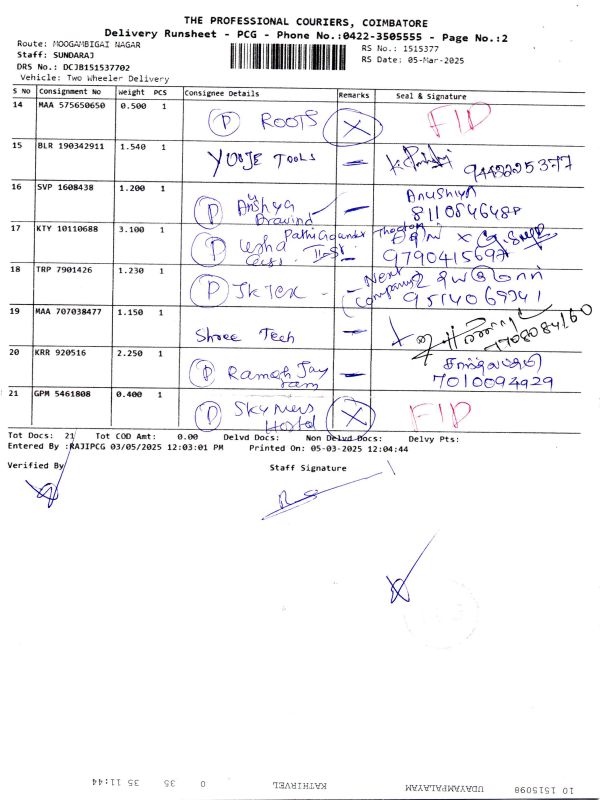 THE PROFESSIONAL COURIERS, COIMBATORE
Delivery Runsheet - PCG - Phone No.:0422-3505555 - Page No.:2
Route: MOOGAMBIGAI NAGAR
RS No.: 1515377
Staff: SUNDARAJ
RS Date: 05-Mar-2025
DRS No.: DCJB151537702
Vehicle: Two Wheeler Delivery
S No Consignment No Weight PCS Consignee Details Remarks Seal & Signature
14 MAA 575650650 0.500 1 P ROOTS X FID
15 BLR 190342911 1.540 1 YONJE TOOLS — 9443225377
16 SVP 1608438 1.200 1 P Anshya Aravind — Anushiya
17 KTY 10110688 3.100 1 P Usha — 9790415697
18 TRP 7901426 1.230 1 P JK Tex - Next Company
9514069341
19 MAA 707038477 1.150 1 Shree Tech — 7708084160
20 KRR 920516 2.250 1 P Ramesh Jay ram —
7010094929
21 GPM 5461808 0.400 1 P Sky Mens Hostel X FID
Tot Docs: 21 Tot COD Amt: 0.00 Delvd Docs: Non Delvd Docs: Delvy Pts:
Entered By :RAJIPCG 03/05/2025 12:03:01 PM Printed On: 05-03-2025 12:04:44
Verified By Staff Signature
10 1515098 UDAYAMPALAYAM KATHIRVEL 0 35 35 11:44